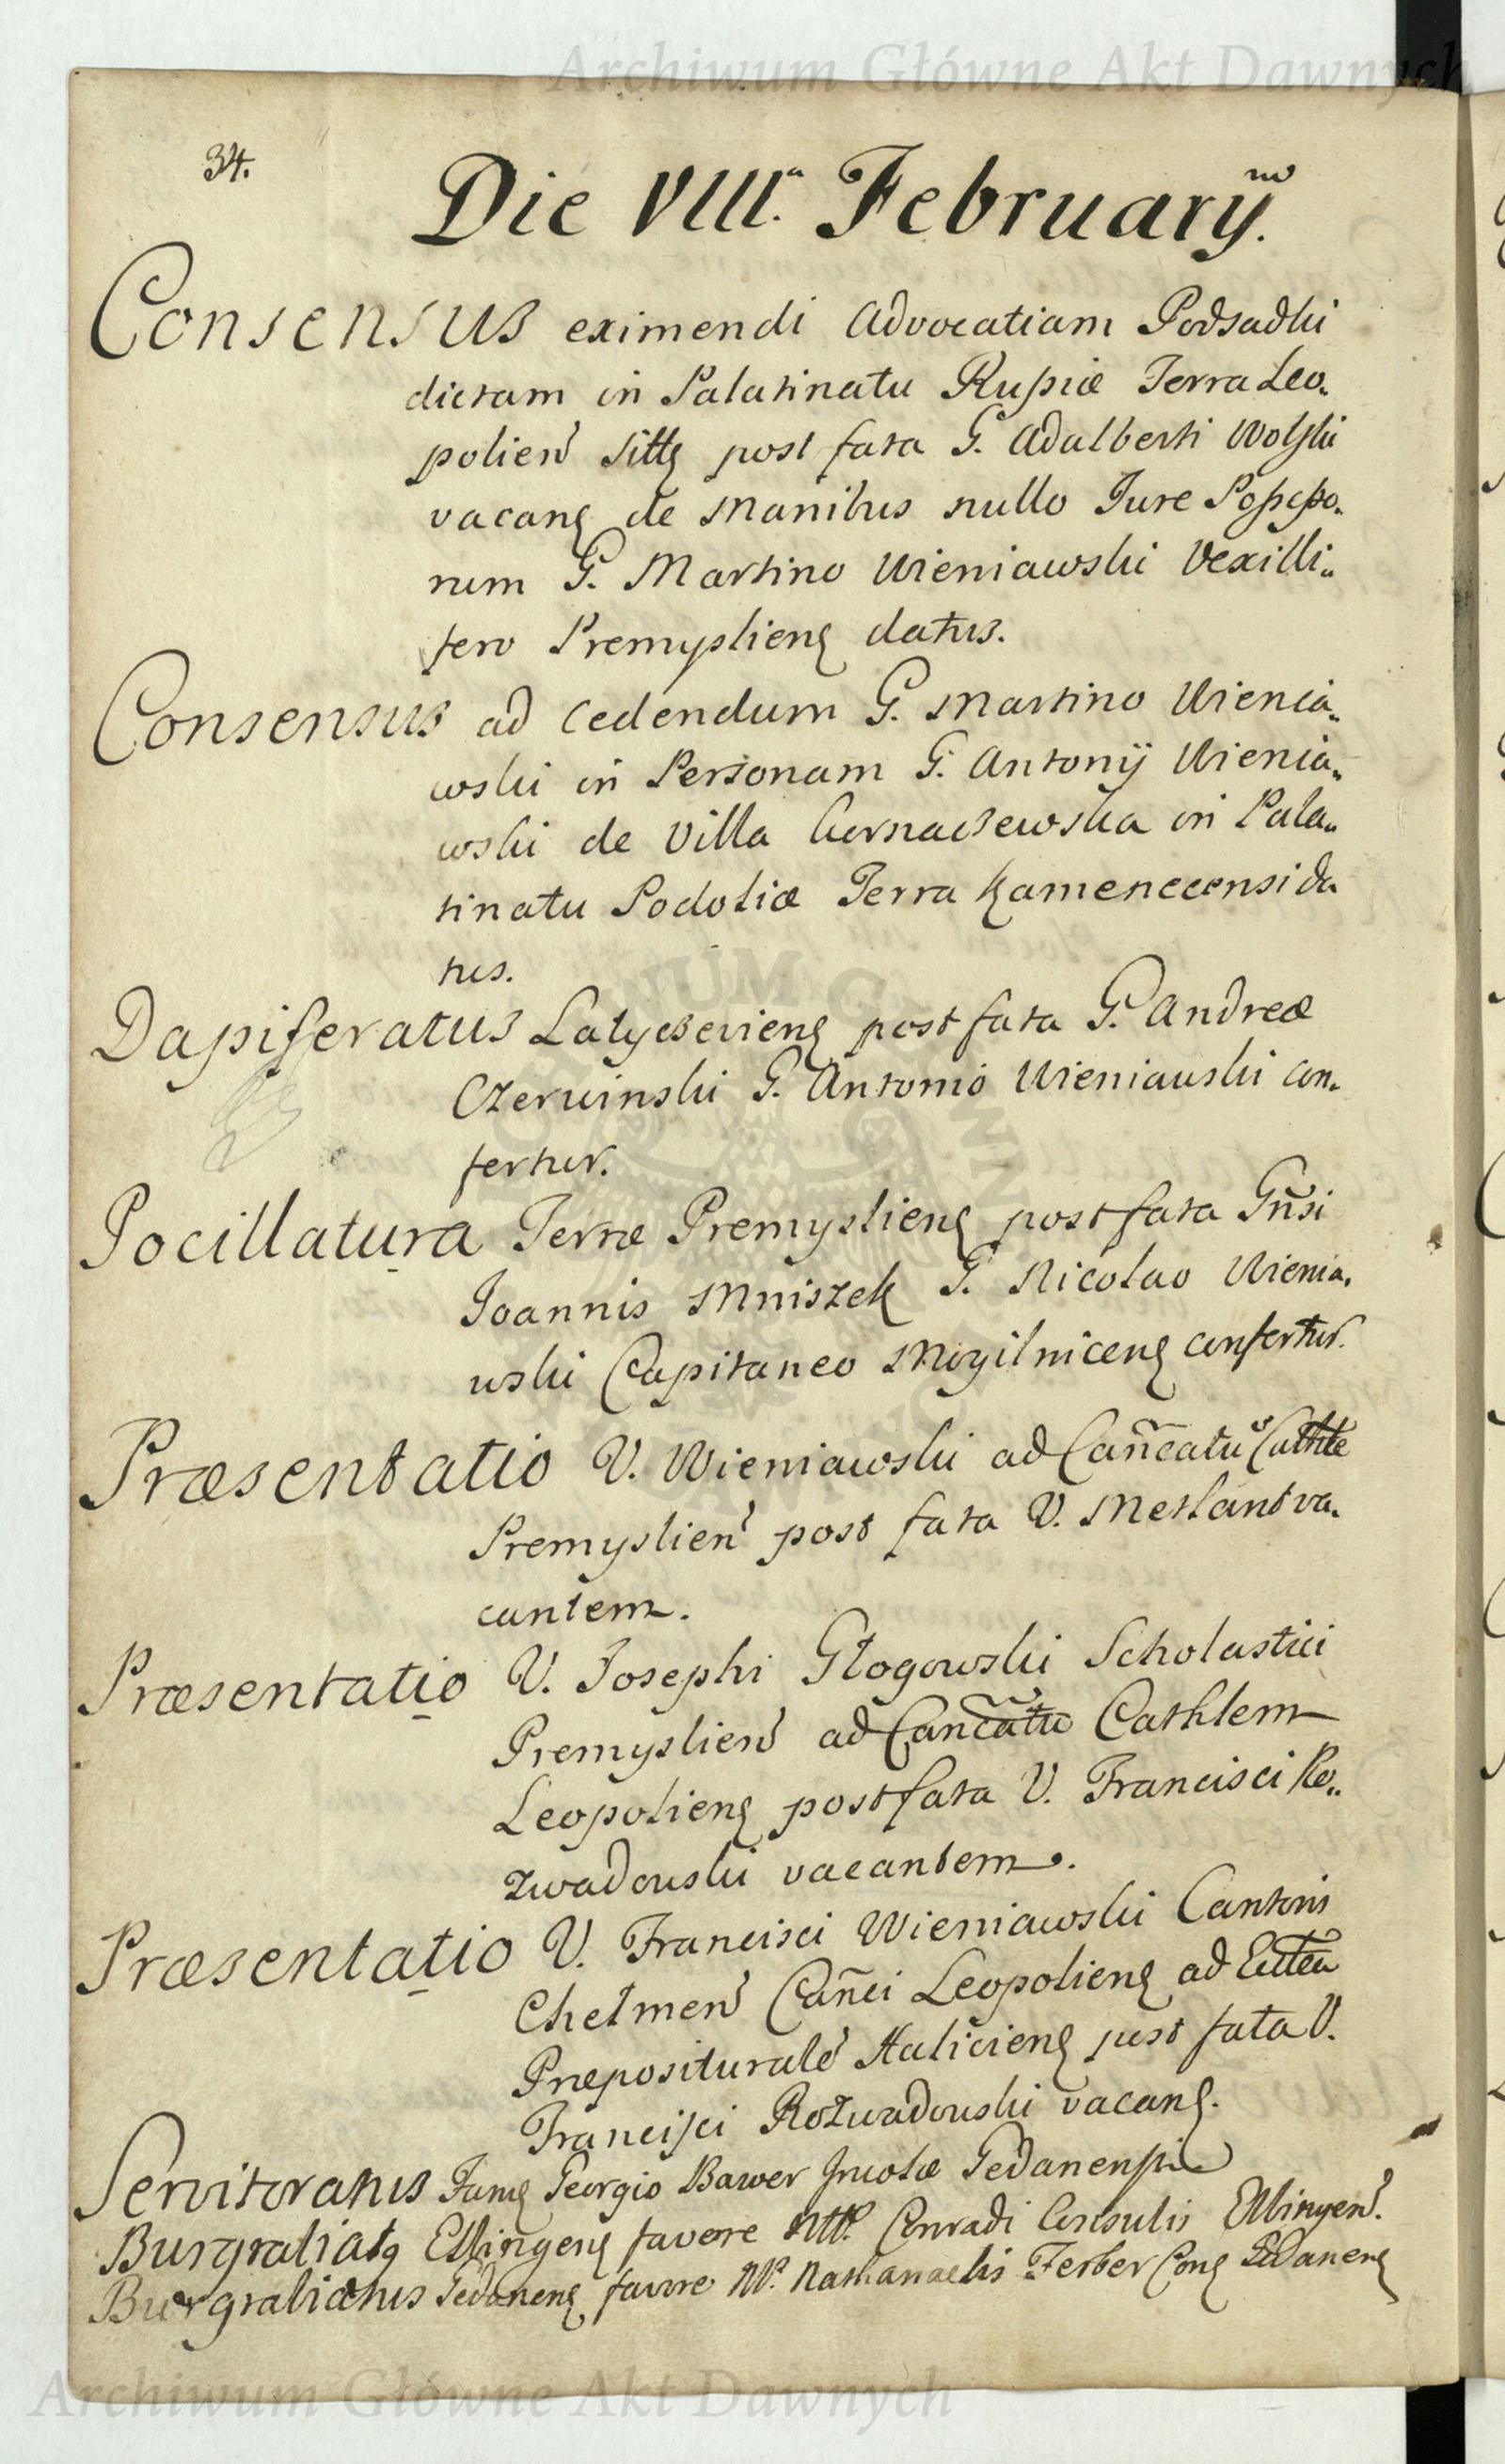 Archiwum Główne Akt Dawnych
34.
Die VIII.a Februarÿ.
Consensus eximendi Advocatiam Podsadki
dictam in Palatinatu Russiæ Terra Leo-
polien sittą post fata G. Adalberti Wolski
vacanę de Manibus nullo Jure Possesso-
rum G. Martino Wieniawski Vexilli-
fero Premyslienę datus.
Consensus ad Cedendum G. Martino Wienia-
wski in Personam G. Antonÿ Wienia-
wski de Villa in Pala-
tinatu Podoliæ Terra Kamenecensi da
tus.
Dapiferatus Latyczevienę post fata G. Andreæ
Czerwinski G. Antonio Wieniawski con-
fertur.
Pocillatura Terræ Premyslienę post fata Gñsi
Joannis Mniszek G. Nicolao Wienia-
wski Capitaneo Mogilnicenę confertur.
Præsentatio V. Wieniawski ad Cañcatũ Cathle
Premyslien post fata V. va-
cantem.
Præsentatio V. Josephi Głogowski Scholastici
Premyslien ad Cancatu Cathlem
Leopolienę post fata V. Francisci Ro-
zwadowski vacantem.
Præsentatio V. Francisci Wieniawski Cantoris
Chelmen Cañci Leopolienę ad Ecclea
Præpositurale Halicienę post fata V.
Francisci Rozwadowski vacanę.
Servitoratus Famę Georgio Bawer Incolæ Gedanensi
Burgrabiatq Elbingenę favore Nll. Conradi Consulis Elbingen.
Burgrabiatus Gedanenę favore Nl. Nathanaelis Ferber Conę Gedanenę
Archiwum Główne Akt Dawnych